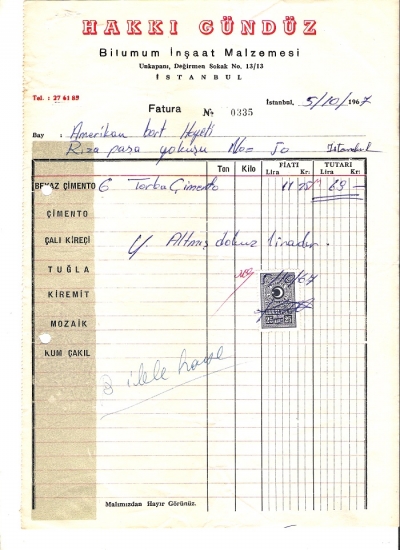 HAKKI GÜNDÜZ
Bilumum İnşaat Malzemesi
Unkapanı, Değirmen Sokak No. 13/13
İSTANBUL
Tel. : 27 61 89
Fatura № 0335 İstanbul, 5/10/1967
Bay : Amerikan bort Heyeti
Rıza paşa yokuşu No= 50 İstanbul
Ton Kilo FİATI Lira Kr: TUTARI Lira Kr:
BEYAZ ÇİMENTO 6 Torba Çimento 11 75 69 —
ÇİMENTO
ÇALI KİREÇİ Y. Altmış dokuz liradır.
TUĞLA
KİREMİT
MOZAİK
KUM ÇAKIL
Malımızdan Hayır Görünüz.